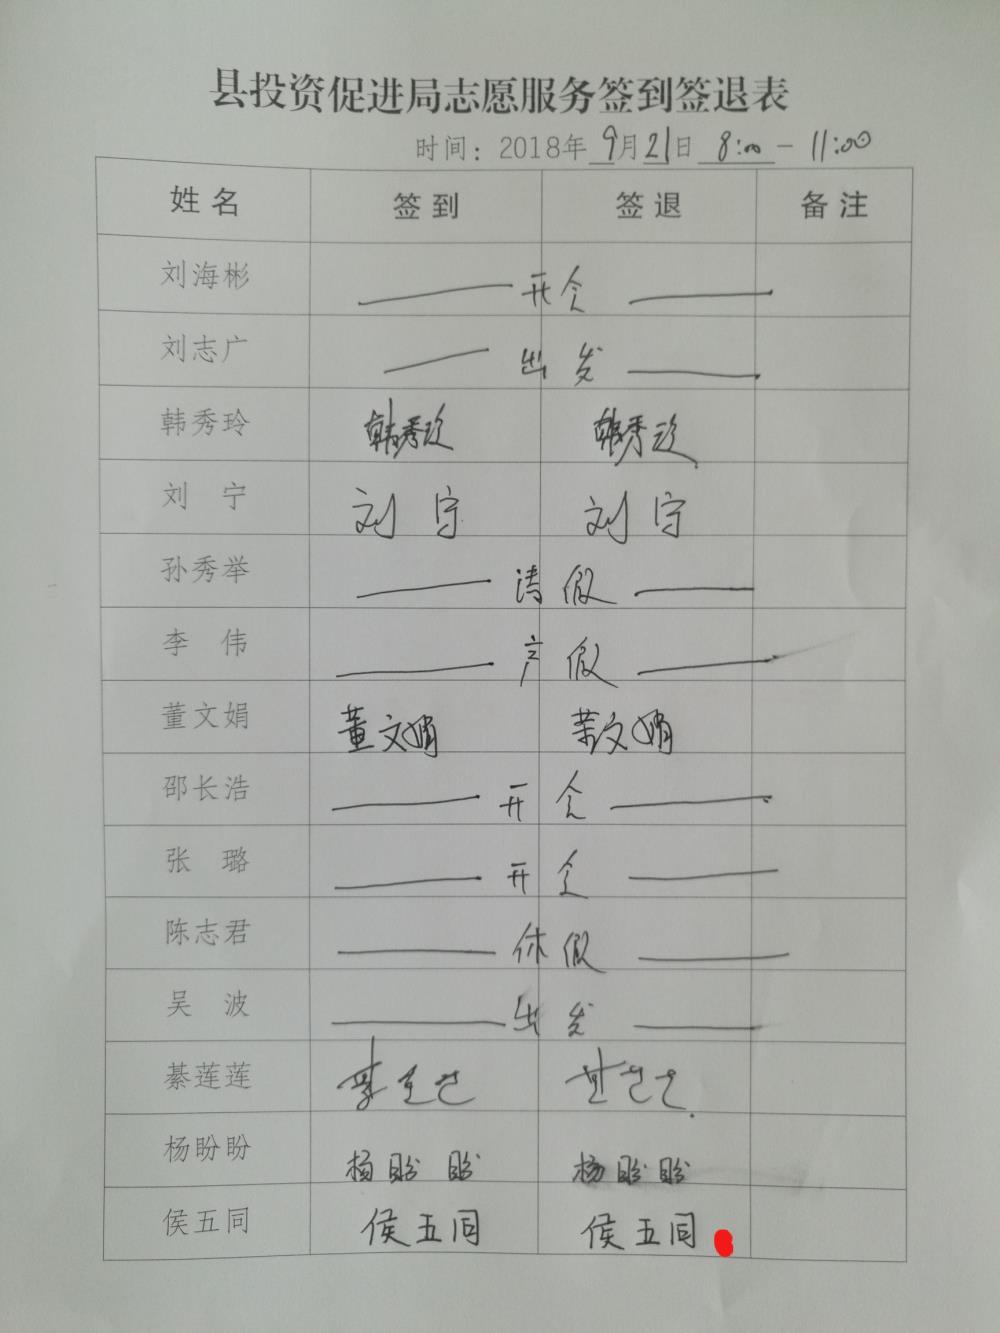 县投资促进局志愿服务签到签退表
时间：2018年9月21日 8:00－11:00
姓名 签到 签退 备注
刘海彬 开会
刘志广 出发
韩秀玲 韩秀玲 韩秀玲
刘宁 刘宁 刘宁
孙秀举 请假
李伟 产假
董文娟 董文娟 董文娟
邵长浩 开会
张璐 开会
陈志君 休假
吴波 出发
綦莲莲 綦莲莲 綦莲莲
杨盼盼 杨盼盼 杨盼盼
侯五同 侯五同 侯五同